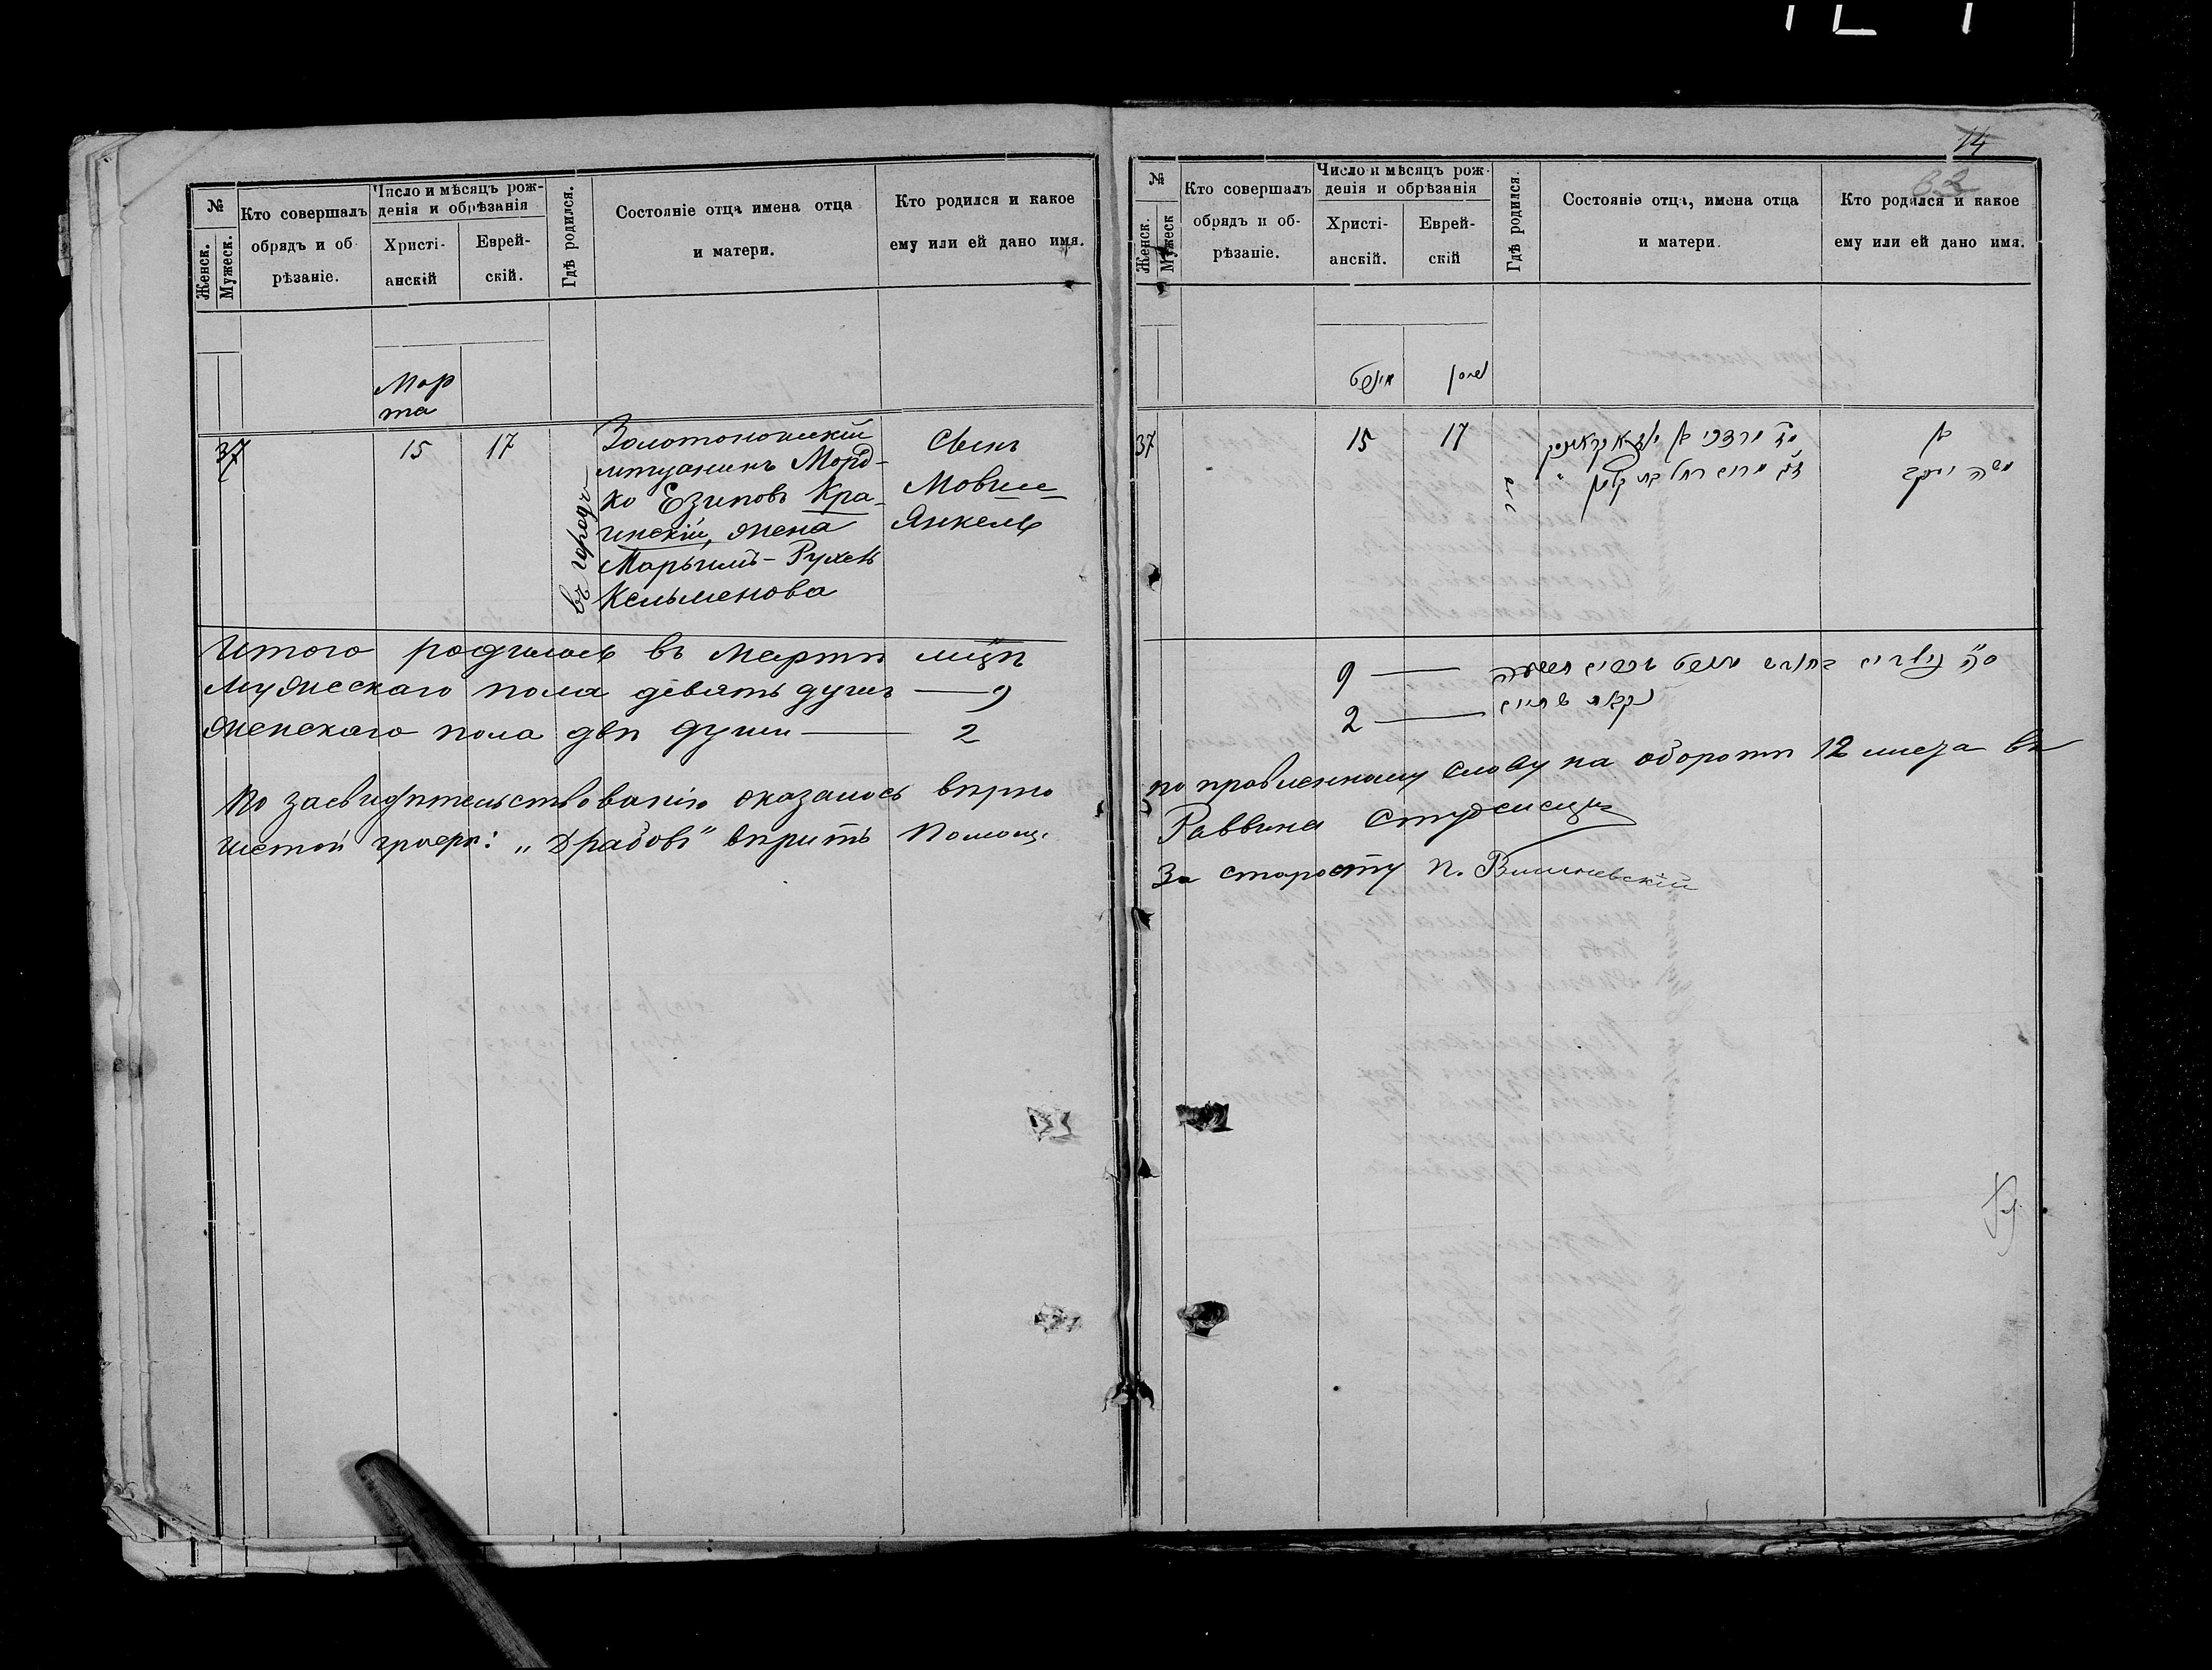 №
Женск.
Мужеск.
Кто совершалъ
обрядъ и об
рѣзаніе.
Число и мѣсяцъ рож-
денія и обрѣзанія
Христі-
анскій
Еврей-
скій.
Гдѣ родился.
Состояніе отца имена отца
и матери.
Кто родился и какое
ему или ей дано имя.
Мар
та
37
15
17
въ городѣ
Золотоношскій
мѣщанинъ Морд-
ко Езиповъ Кра-
инскій, жена
Марьимъ-Рухель
Кельменова
Сынъ
Мовше
Янкель
Итого родилось въ Мартѣ мцѣ
Мужескаго пола девять душъ — 9
Женскаго пола двѣ души — 2
По засвидѣтельствованію оказалось вѣрно
шестой графѣ: „Драбовъ" вѣрить Помощ.
14
№
Женск.
Мужеск
Кто совершалъ
обрядъ и об-
рѣзаніе.
Число и мѣсяцъ рож-
денія и обрѣзанія
Христі-
анскій.
Еврей-
скій
Гдѣ родился.
Состояніе отца, имена отца
и матери.
Кто родился и какое
ему или ей дано имя.
37
15
17
מרדכי
רחל בת
בן
משה יעקב
9 —
2 —
по правленному слову на оборотѣ 12 листа въ
Раввина
За старосту П. Вишневскій